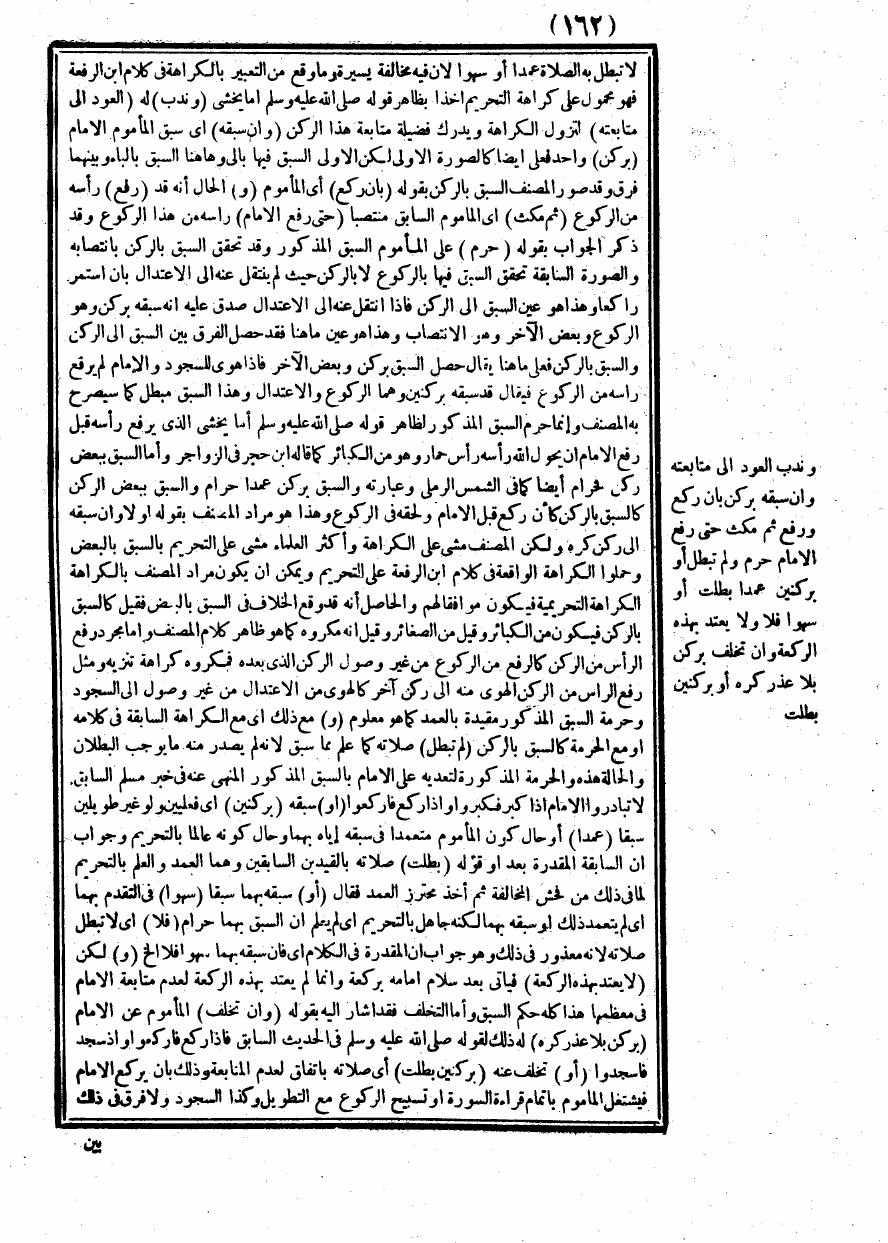 (١٦٢)
لا تبطل به الصلاة عمدا أو سهوا لان فيه مخالفة يسيرة وما وقع من التعبير بالكراهة فى كلام ابن الرفعة
فهو محمول على كراهة التحريم اخذا بظاهر قوله صلى الله عليه وسلم اما يخشى (وندب) له (العود الى
متابعته) لتزول الكراهة ويدرك فضيلة متابعة هذا الركن (وان سبقه) اى سبق المأموم الامام
(بركن) واحد فعلى ايضا كالصورة الاولى لكن الاولى السبق فيها بالى وهاهنا السبق بالباء وبينهما
فرق وقد صور المصنف السبق بالركن بقوله (بان ركع) أى المأموم (و) الحال أنه قد (رفع) رأسه
من الركوع (ثم مكث) اى الماموم السابق منتصبا (حتى رفع الامام) راسه من هذا الركوع وقد
ذكر الجواب بقوله (حرم) على المأموم السبق المذكور وقد تحقق السبق بالركن بانتصابه
والصورة السابقة تحقق السبق فيها بالركوع لا بالركن حيث لم ينتقل عنه الى الاعتدال بان استمر
راكعا وهذا هو عين السبق الى الركن فاذا انتقل عنه الى الاعتدال صدق عليه انه سبقه بركن وهو
الركوع وبعض الآخر وهو الانتصاب وهذا هو عين ماهنا فقد حصل الفرق بين السبق الى الركن
والسبق بالركن فعلى ماهنا يقال حصل السبق بركن وبعض الآخر فاذا هوى للسجود والامام لم يرفع
راسه من الركوع فيقال قد سبقه بركنين وهما الركوع والاعتدال وهذا السبق مبطل كما سيصرح
به المصنف وإنما حرم السبق المذكور لظاهر قوله صلى الله عليه وسلم أما يخشى الذى يرفع رأسه قبل
رفع الامام ان يحول الله رأسه رأس حمار وهو من الكبائر كما قاله ابن حجر فى الزواجر وأما السبق ببعض
ركن فحرام أيضا كما فى الشمس الرملى وعبارته والسبق بركن عمدا حرام والسبق ببعض الركن
كالسبق بالركن كأن ركع قبل الامام ولحقه فى الركوع وهذا هو مراد المصنف بقوله اولا وان سبقه
الى ركن كره ولكن المصنف مشى على الكراهة وأكثر العلماء مشى على التحريم بالسبق بالبعض
وحملوا الكراهة الواقعة فى كلام ابن الرفعة على التحريم ويمكن ان يكون مراد المصنف بالكراهة
الكراهة التحريمية فيكون موافقا لهم والحاصل أنه قد وقع الخلاف فى السبق بالبعض فقيل كالسبق
بالركن فيكون من الكبائر وقيل من الصغائر وقيل انه مكروه كما هو ظاهر كلام المصنف واما مجرد رفع
الرأس من الركن كالرفع من الركوع من غير وصول الركن الذى بعده فمكروه كراهة تنزيه ومثل
رفع الراس من الركن الهوى منه الى ركن آخر كالهوى من الاعتدال من غير وصول الى السجود
وحرمة السبق المذكور مقيدة بالعمد كما هو معلوم (و) مع ذلك اى مع الكراهة السابقة فى كلامه
او مع الحرمة كالسبق بالركن (لم تبطل) صلاته كما علم مما سبق لانه لم يصدر منه ما يوجب البطلان
والحالة هذه والحرمة المذكورة لتعديه على الامام بالسبق المذكور المنهى عنه فى خبر مسلم السابق
لا تبادروا الامام اذا كبر فكبروا واذا ركع فاركعوا (او) سبقه (بركنين) اى فعليين ولو غير طويلين
سبقا (عمدا) أو حال كون المأموم متعمدا فى سبقه إياه بهما وحال كونه عالما بالتحريم وجواب
ان السابقة المقدرة بعد او قوله (بطلت) صلاته بالقيدين السابقين وهما العمد والعلم بالتحريم
لما فى ذلك من فحش المخالفة ثم أخذ محترز العمد فقال (أو) سبقه بهما سبقا (سهوا) فى التقدم بهما
اى لم يتعمد ذلك او سبقه بهما لكنه جاهل بالتحريم اى لم يعلم ان السبق بهما حرام (فلا) اى لا تبطل
صلاته لانه معذور فى ذلك وهو جواب ان المقدرة فى الكلام اى فان سبقه بهما سهوا فلا الخ (و) لكن
(لا يعتد بهذه الركعة) فياتى بعد سلام امامه بركعة وانما لم يعتد بهذه الركعة لعدم متابعة الامام
فى معظمها هذا كله حكم السبق وأما التخلف فقد اشار اليه بقوله (وان تخلف) المأموم عن الامام
(بركن بلا عذر كره) له ذلك لقوله صلى الله عليه وسلم فى الحديث السابق فاذا ركع فاركعوا واذا سجد
فاسجدوا (أو) تخلف عنه (بركنين بطلت) أى صلاته باتفاق لعدم المتابعة وذلك بان يركع الامام
فيشتغل الماموم باتمام قراءة السورة او تسبيح الركوع مع التطويل وكذا السجود ولا فرق فى ذلك
بين
وندب العود الى متابعته
وان سبقه بركن بان ركع
ورفع ثم مكث حتى رفع
الامام حرم ولم تبطل أو
بركنين عمدا بطلت أو
سهوا فلا ولا يعتد بهذه
الركعة وان تخلف بركن
بلا عذر كره أو بركنين
بطلت